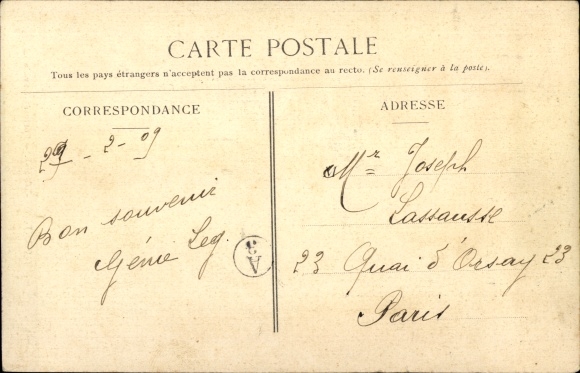 CARTE POSTALE
Tous les pays étrangers n'acceptent pas la correspondance au recto. (Se renseigner à la poste).
CORRESPONDANCE
- 2 - 09
Bon souvenir
Génie Leg.
A3
ADRESSE
Mr Joseph
Lassausse
23 Quai d'Orsay 23
Paris